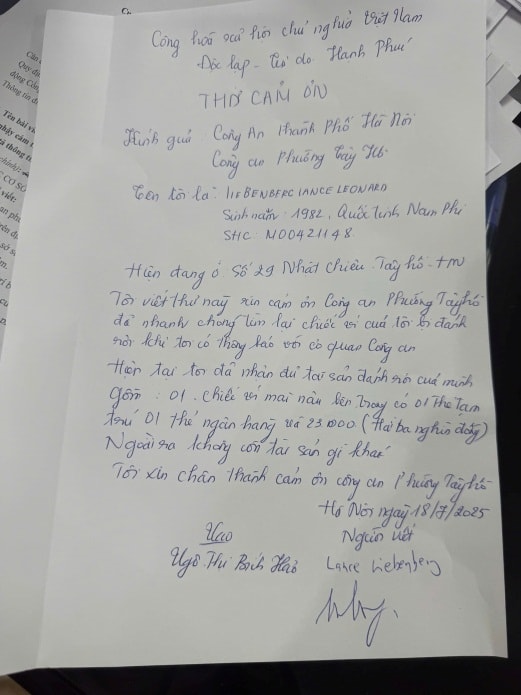 Cộng hoà xã hội chủ nghĩa Việt Nam
Độc lập - Tự do Hạnh Phúc
THƯ CẢM ƠN
Kính gửi: Công An thành Phố Hà Nội
Công an Phường Tây Hồ
Tên tôi là: LIEBENBERG LANCE LEONARD
Sinh năm: 1982, Quốc tịch Nam Phi
SHC: M00421148
Hiện đang ở Số 29 Nhật chiêu. Tây hồ. HN
Tôi viết thư này xin cảm ơn Công an Phường Tây hồ
đã nhanh chóng tìm lại chiếc ví của tôi bị đánh
rơi khi tôi có thông báo với cơ quan Công an
Hiện tại tôi đã nhận đủ tài sản đánh rơi của mình
gồm: 01. chiếc ví màu nâu bên trong có 01 thẻ tạm
trú 01 thẻ ngân hàng và 23000 (Hai ba nghìn đồng)
Ngoài ra không còn tài sản gì khác
Tôi xin chân thành cảm ơn công an Phường Tây hồ
Hà Nội ngày 18/7/2025
Người viết
Ngô Thị Bích Hảo Lance Liebenberg